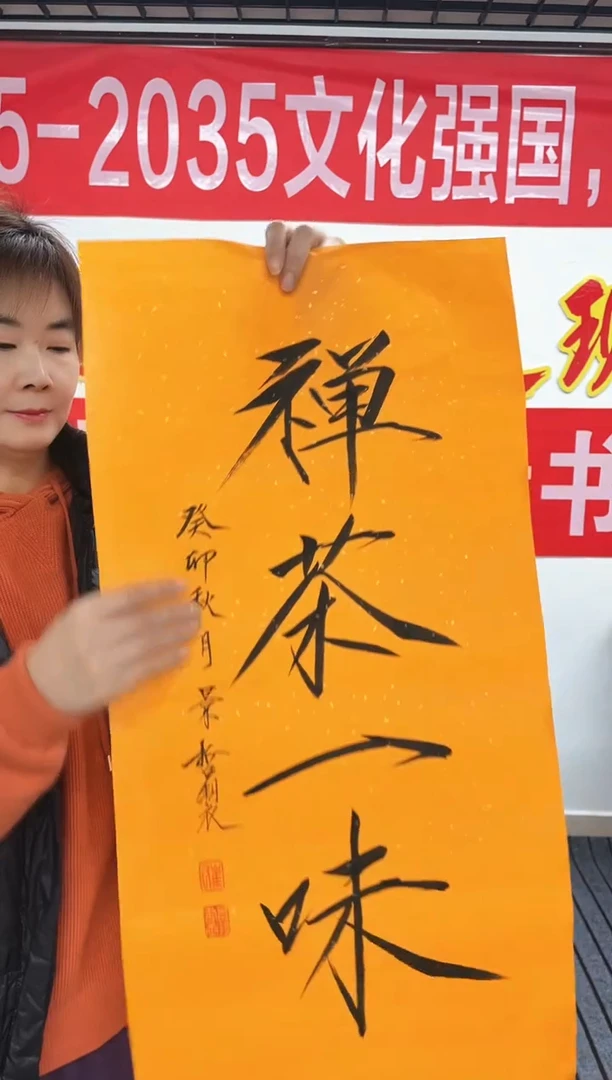 5-2035文化强国，
书
禅茶一味
癸卯秋月